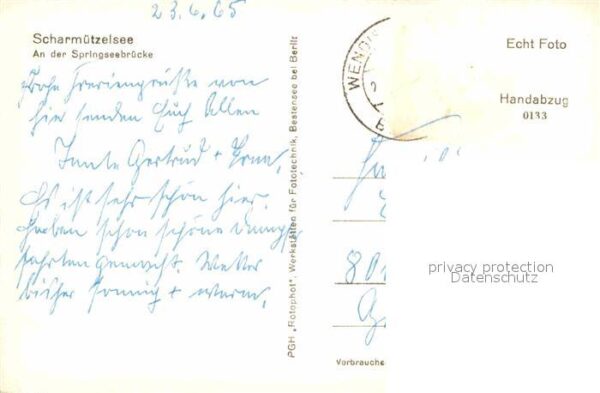 23.6.65
Scharmützelsee
An der Springseebrücke
Frohe Feriengrüße von
hier senden Euch Allen
Tante Gertrud +
Es ist sehr schön hier.
Haben schon schöne Dampf-
fahrten gemacht. Wetter
bisher sonnig + warm.
PGH „Rotophot", Werkstätten für Fototechnik, Bestensee bei Berlin
WENDI
Echt Foto
Handabzug
0133
privacy protection
Datenschutz
Vorbrauche